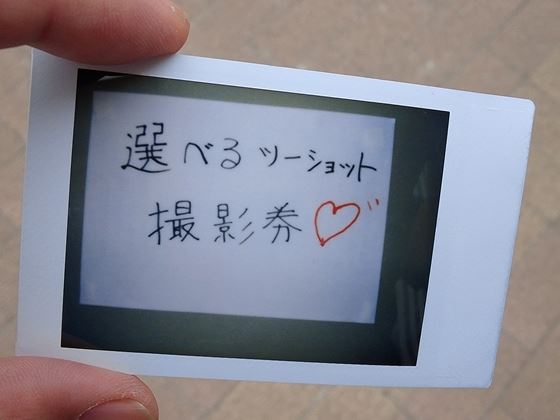 選べるツーショット
撮影券♡